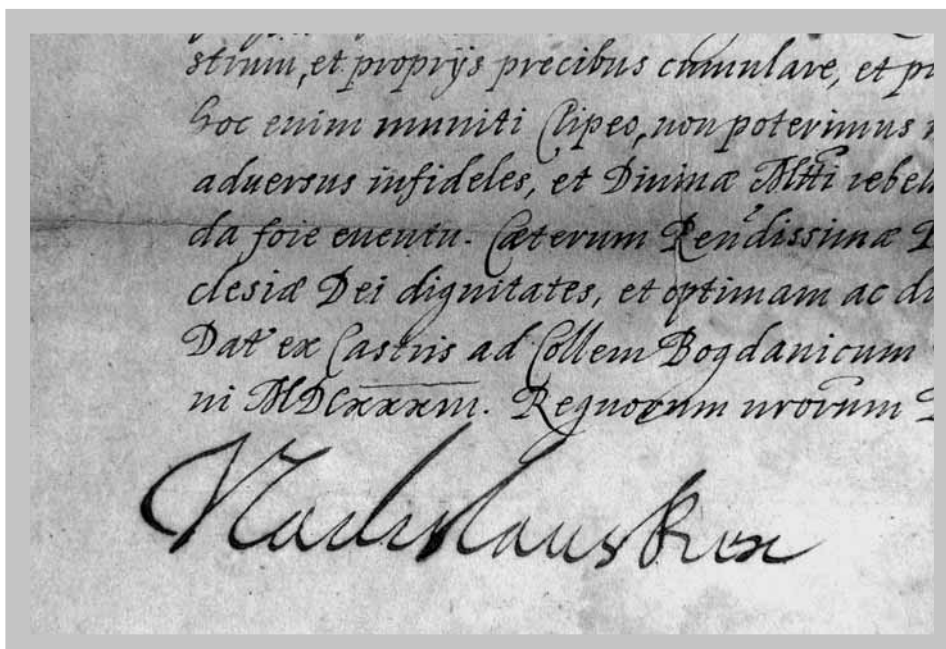 strum, et proprijs precibus cumulare, et pr
hoc enim muniti Clipeo, non poterimus
aduersus infideles, et Diuinæ Mtti rebel
da foie euentu. Cæterum Reu'dissimæ
clesiæ Dei dignitates, et optimam ac di
Dat' ex Castris ad Collem Bogdanicum
ni MDCxxxiii. Regnorum nrorum
Vladislaus Rex